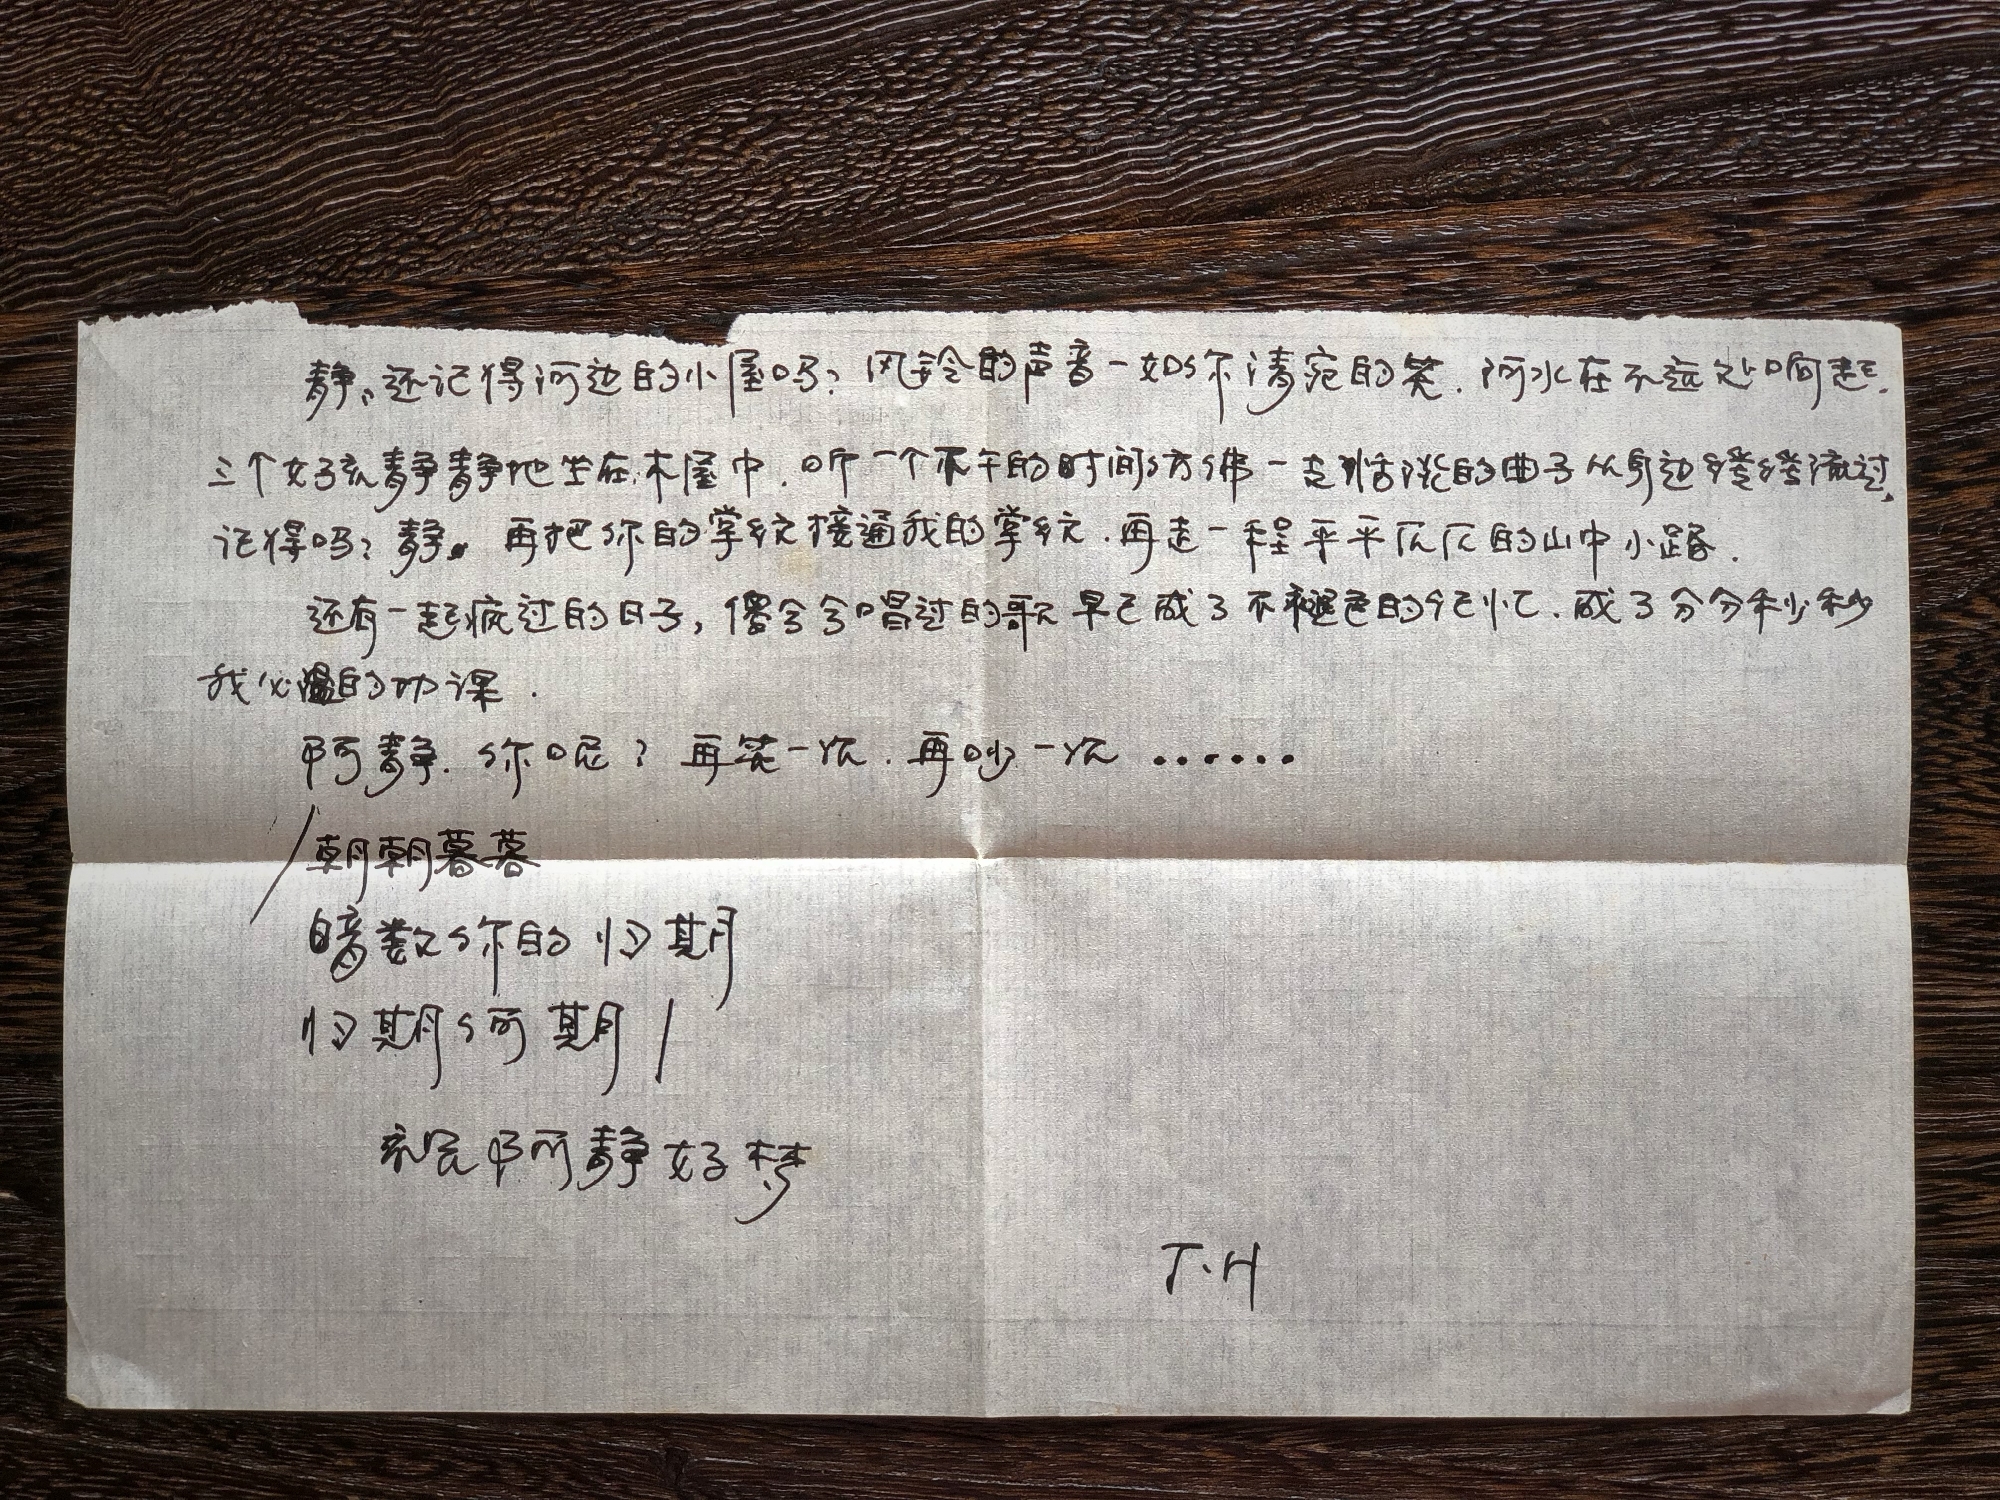 静。还记得河边的小屋吗？风铃的声音一如你清宛的笑.河水在不远处响起.
三个女孩静静地坐在木屋中.听一个下午的时间仿佛一支恬淡的曲子从身边缓缓流过.
记得吗？静。再把你的掌纹接通我的掌纹.再走一程平平仄仄的山中小路.
还有一起疯过的日子，傻傻唱过的歌早已成了不褪色的记忆.成了分分秒秒
我必温的功课.
阿静.你呢？再笑一次.再吵一次......
/朝朝暮暮
暗数你的归期
归期何期/
祝阿静好梦
T.H